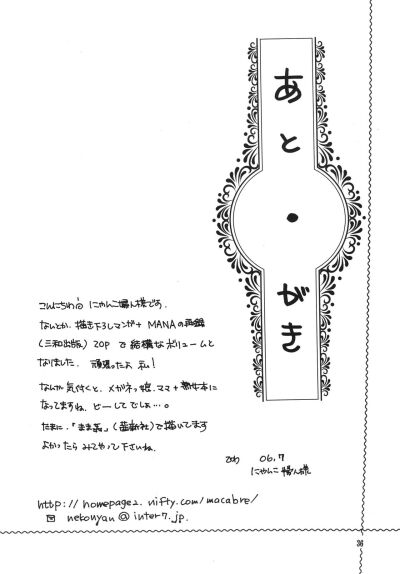 あと・がき
こんにちわ にゃんこ婦人様です。
なんとか、描き下ろしマンガ+ MANAの再録
(三和出版) 20p で結構なボリュームと
なりました。 頑張ったよ 私！
なんか気付くと、メガネっ娘、ママ+ 熟女本に
なってますね。どーしてでしょ…。
たまに、「まま姦」(茜新社)で描いてます
よかったら みてやって下さいね。
06.7
にゃんこ婦人様
http://homepage2.nifty.com/macabre/
nekonyan@inter7.jp.
36